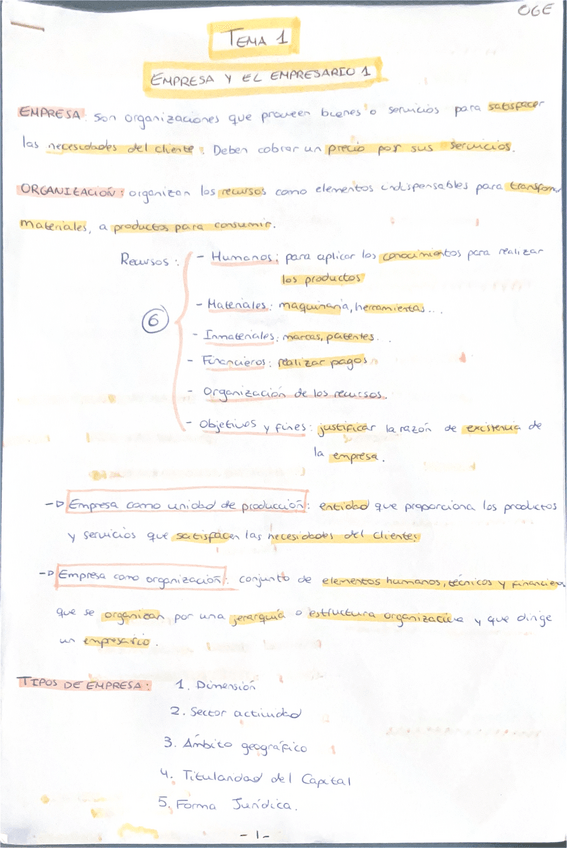 OGE
TEMA 1
EMPRESA Y EL EMPRESARIO 1
EMPRESA: Son organizaciones que proveen bienes o servicios para satisfacer
las necesidades del cliente. Deben cobrar un precio por sus servicios.
ORGANIZACIÓN: organizan los recursos como elementos indispensables para transform
materiales, a productos para consumir.
Recursos: - Humanos: para aplicar los conocimientos para realizar
los productos
- Materiales: maquinaria, herramientas...
6
- Inmateriales: marcas, patentes...
- Financieros: realizar pagos
- Organización de los recursos.
- Objetivos y fines: justificar la razón de existencia de
la empresa.
→ Empresa como unidad de producción: entidad que proporciona los productos
y servicios que satisfacen las necesidades del cliente
→ Empresa como organización: conjunto de elementos humanos, técnicos y financieros
que se organizan, por una jerarquía o estructura organizativa y que dirige
un empresario.
TIPOS DE EMPRESA: 1. Dimensión
2. Sector actividad
3. Ámbito geográfico
4. Titularidad del Capital
5. Forma Jurídica.
- 1 -